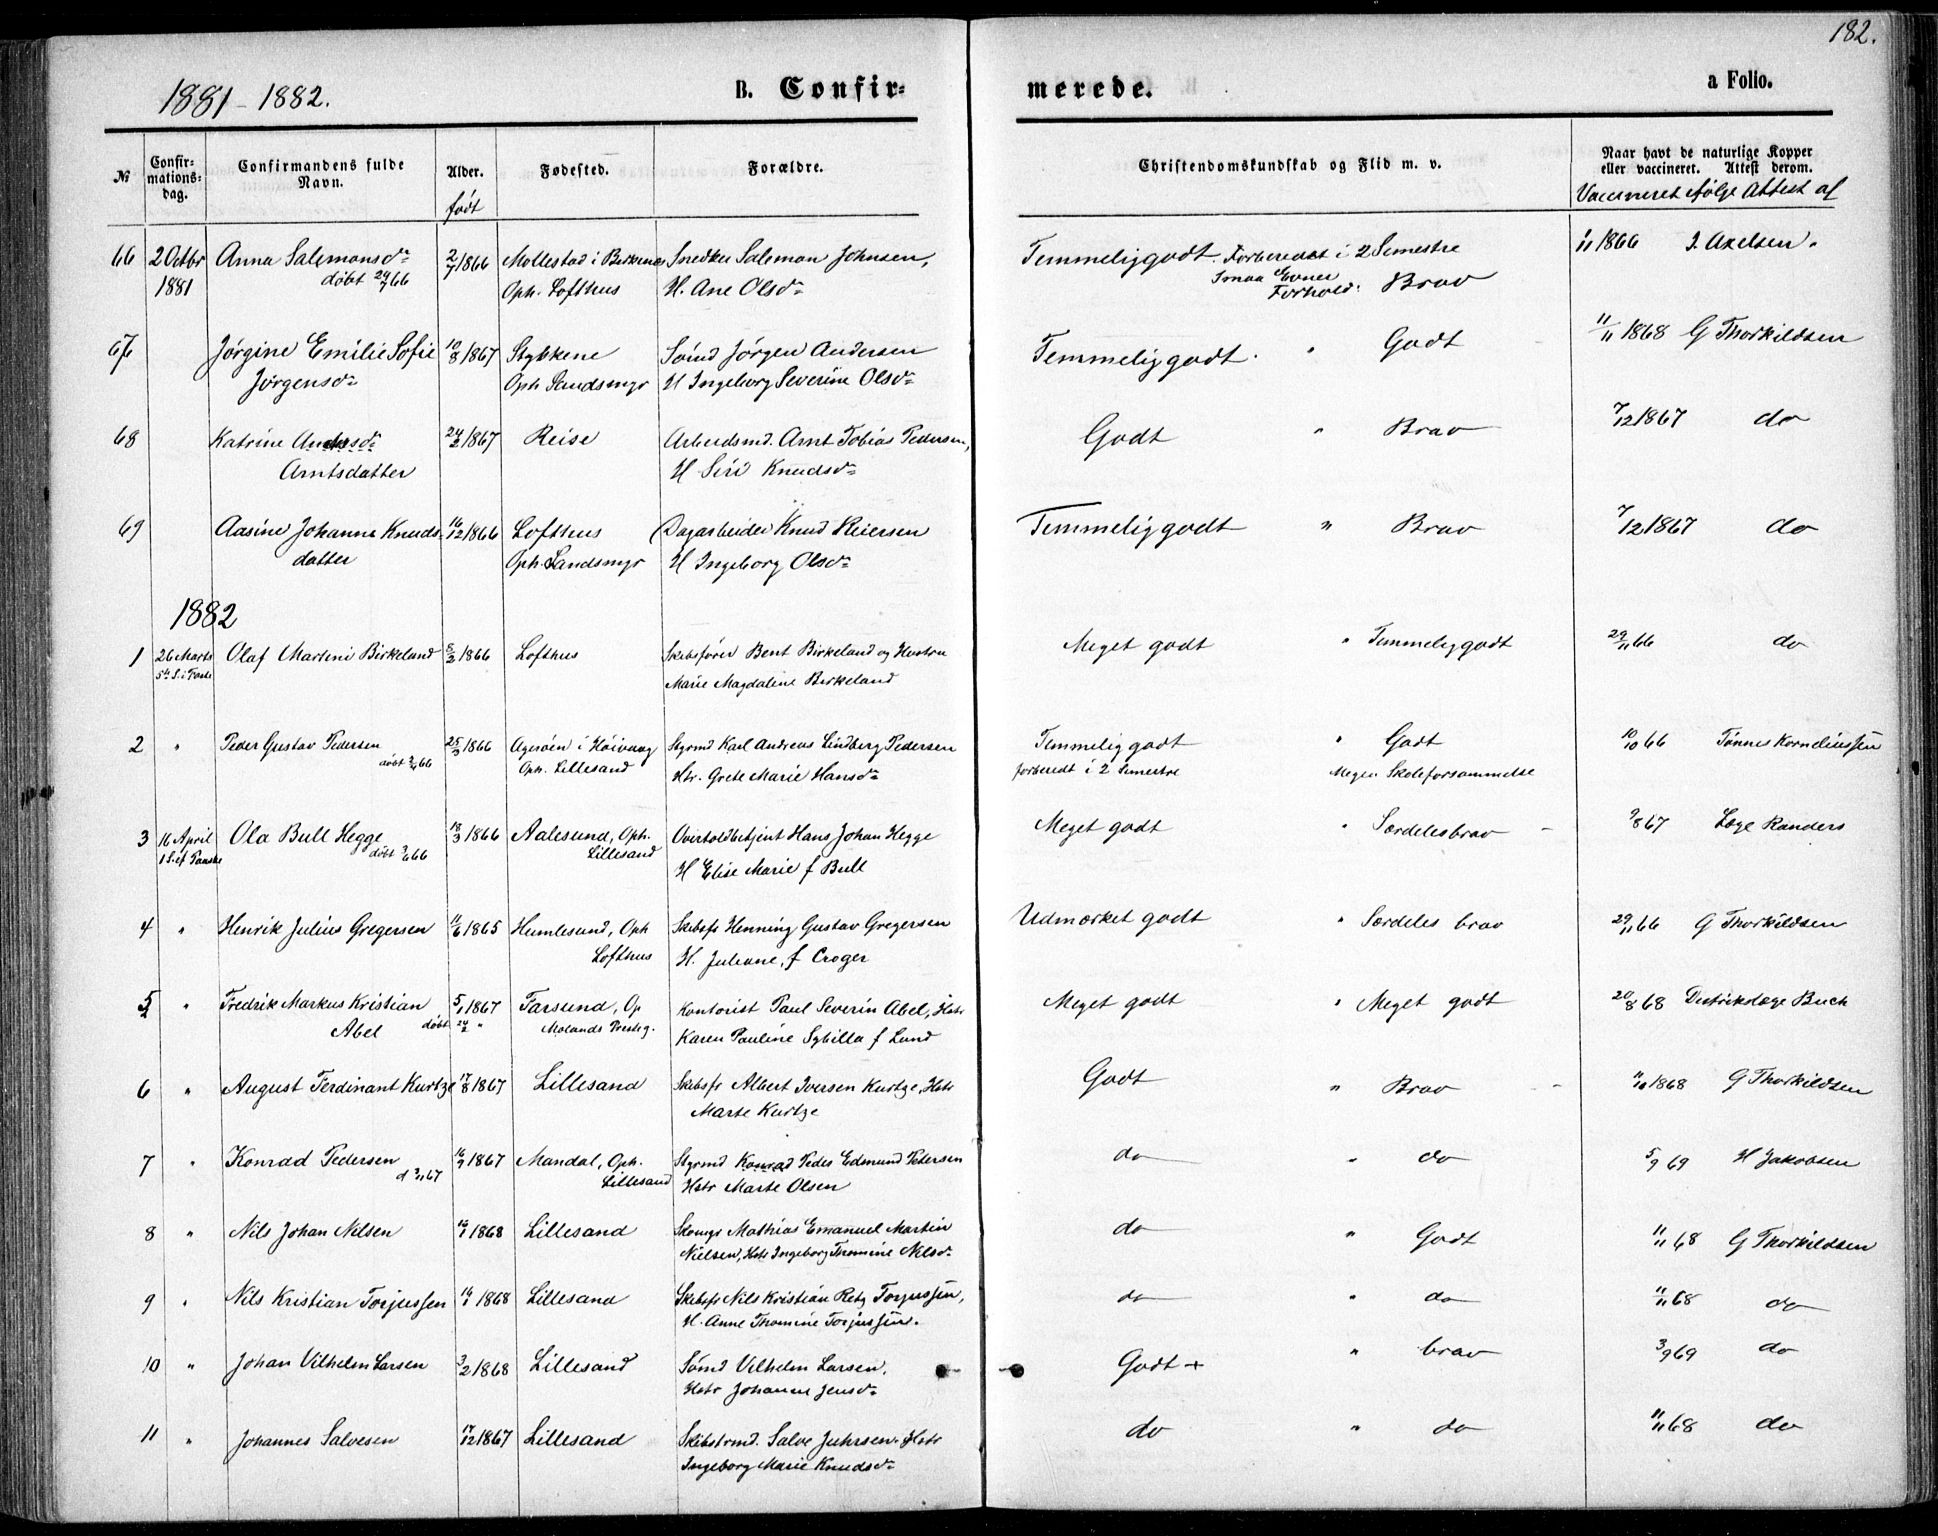 182.
1881-1882.
B. Confirmerede.
a Folio.
№ Confirmationsdag. Confirmandens fulde Navn. Alder. født Fødested. Forældre. Christendomskundskab og Flid m. v. Naar havt de naturlige Kopper eller vaccineret. Attest derom. Vaccineret ifølge Attest af
66 2 Octbr Anna Salemonsdr 2/7 1866 Mollestad i Birkenes Snedker Salemon Johnsen, Temmelig godt. Forberedt i 2 Semestre 1/11 1866 J. Axelsen.
1881 døbt 29/7 66 Oph. Lofthus H. Ane Olsdr Smaa Evner Forhold: Brav
67 Jørgine Emilie Sofie 10/8 1867 Stykkene Sømd Jørgen Andersen Temmelig godt. " Godt 11/11 1868 G Thorkildsen
Jørgensdr Oph Sandsmyr H Ingeborg Severine Olsdr
68 Katrine 24/2 1867 Reise Arbeidsmd. Arnt Tobias Pedersen, Godt " Brav 7/12 1867 do
Arntsdatter H Siri Knudsdr
69 Aasine Johanne Knuds- 16/12 1866 Lofthus Dagarbeider Knud Reiersen Temmelig godt " Brav 7/12 1867 do
datter Oph. Sandsmyr H Ingeborg Olsdr
1882
1 26 Marts Olaf Martini Birkeland 5/3 1866 Lofthus Skibsfører Bent Birkeland og Hustru Meget godt " Temmelig godt 29/11 66 do
5te S. i Faste Marie Magdaline Birkeland
2 " Peder Gustav Pedersen 25/3 1866 Agerøen i Høivaag Styrmd Karl Andreas Lindberg Pedersen Temmelig godt " Godt 10/10 66 Tønnes Korneliussen
døbt 66 Oph. Lillesand Htr. Grete Marie Hansdr forberedt i 2 Semestre Megen Skoleforsømmelse
3 16 April Ola Bull Hegge 18/3 1866 Aalesund, Oph. Overtoldbetjent Hans Johan Hegge Meget godt " Særdeles brav 9/8 67 Læge Randers
1 S. ef Paaske døbt 3/6 66 Lillesand H Elise Marie f Bull
4 " Henrik Julius Gregersen 11/6 1865 Humlesund, Oph Skibsfr Henning Gustav Gregersen Udmærket godt " Særdeles brav 29/11 66 G Thorkildsen
Lofthus H. Juliane, f Croger
5 " Fredrik Markus Kristian 5/1 1867 Farsund, Op Kontorist Paul Severin Abel, Hstr Meget godt " Meget godt 20/8 68 Distriktslæge Buch
Abel døbt 24/2 " Molands Prestg. Karen Pauline Sybilla f Lund
6 " August Ferdinant Kurtze 17/8 1867 Lillesand Skibsfr Albert Iversen Kurtze, Hstr Godt " Brav 11/10 1868 G Thorkildsen
Marte Kurtze
7 " Konrad Pedersen 16/9 1867 Mandal, Oph. Styrmd Peder Edmund Petersen do " do 5/9 69 H Jakobsen
d 3/11 67 Lillesand Hstr Marte Olsen
8 " Nils Johan Nilsen 16/1 1868 Lillesand Skomgr Mathias Emanuel Martin do " Godt 11/11 68 G Thorkildsen
Nielsen, Hstr Ingeborg Thomine Nilsdr
9 " Nils Kristian Torjussen 16/1 1868 Lillesand Skibsfr Nils Kristian Retz Torjussen, do " do 11/11 68 do
H. Anne Thomine Torjussen.
10 " Johan Vilhelm Larsen 3/2 1868 Lillesand Sømd Vilhelm Larsen, Godt + " brav 3/9 69 do
Hstr Johanne Jensdr
11 " Johannes Salvesen 17/12 1867 Lillesand Skibstrmd. Salve Juhrsen. Hstr do " do 11/11 68 do
Ingeborg Marie Knudsdr